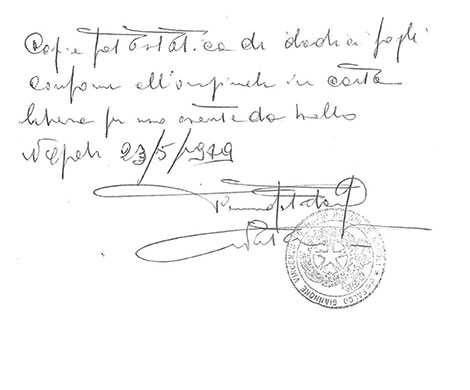 Copia fotostatica di dodici fogli
conforme all'originale in carta
libera per uso esente da bollo
Napoli 23/5/1979
GIANNONE VINCE